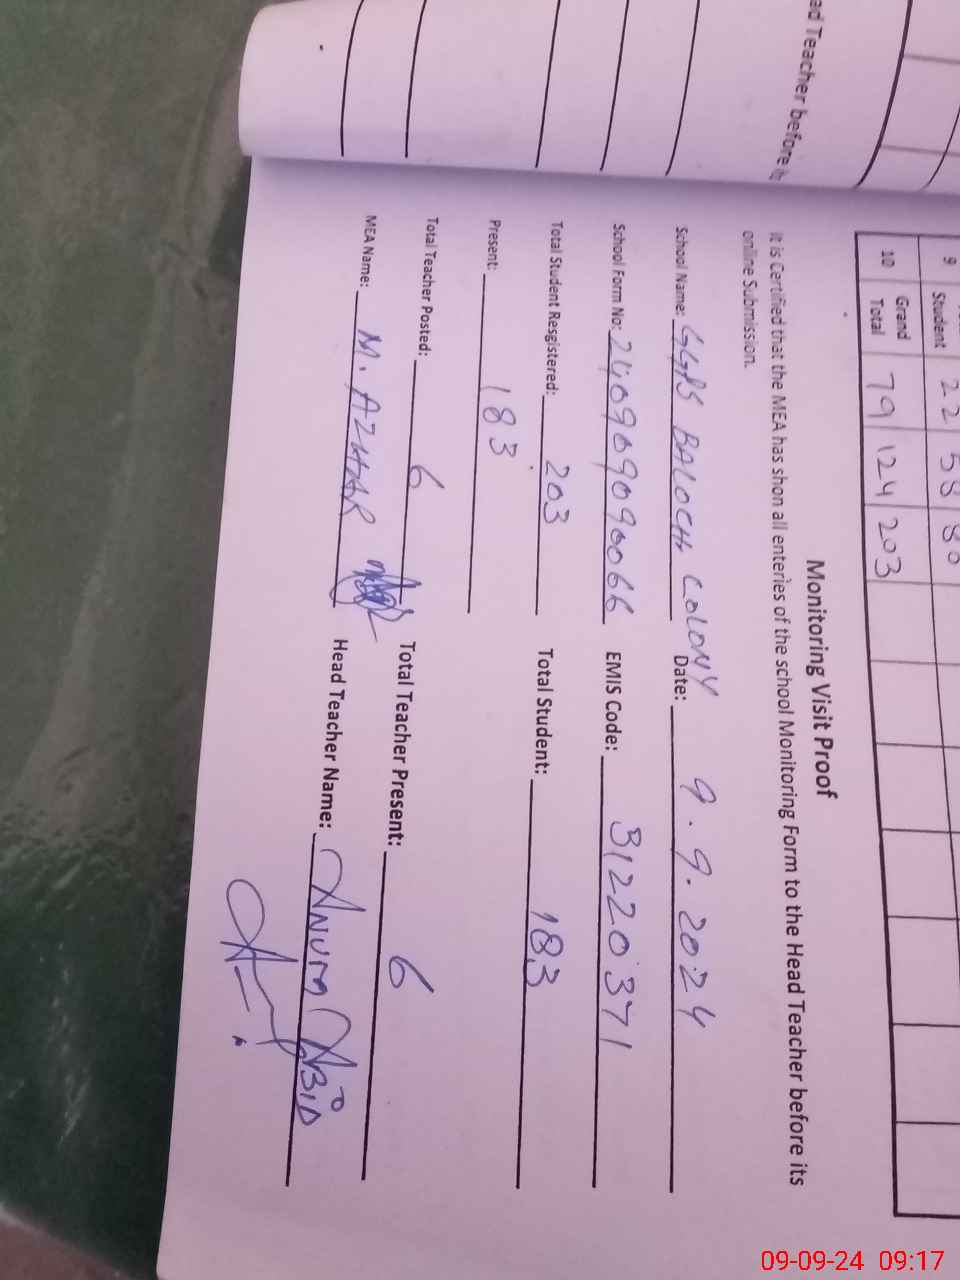 ad Teacher before its
9 Student 22 58 80
10 Grand Total 79 124 203
Monitoring Visit Proof
It is Certified that the MEA has shon all enteries of the school Monitoring Form to the Head Teacher before its
online Submission.
School Name: GGPS BALOCH COLONY Date: 9.9.2024
School Form No: EMIS Code: 31220371
Total Student Resgistered: 203 Total Student: 183
Present: 183
Total Teacher Posted: 6 Total Teacher Present: 6
MEA Name: M. AZHAR Head Teacher Name: ANUM ABID
09-09-24 09:17